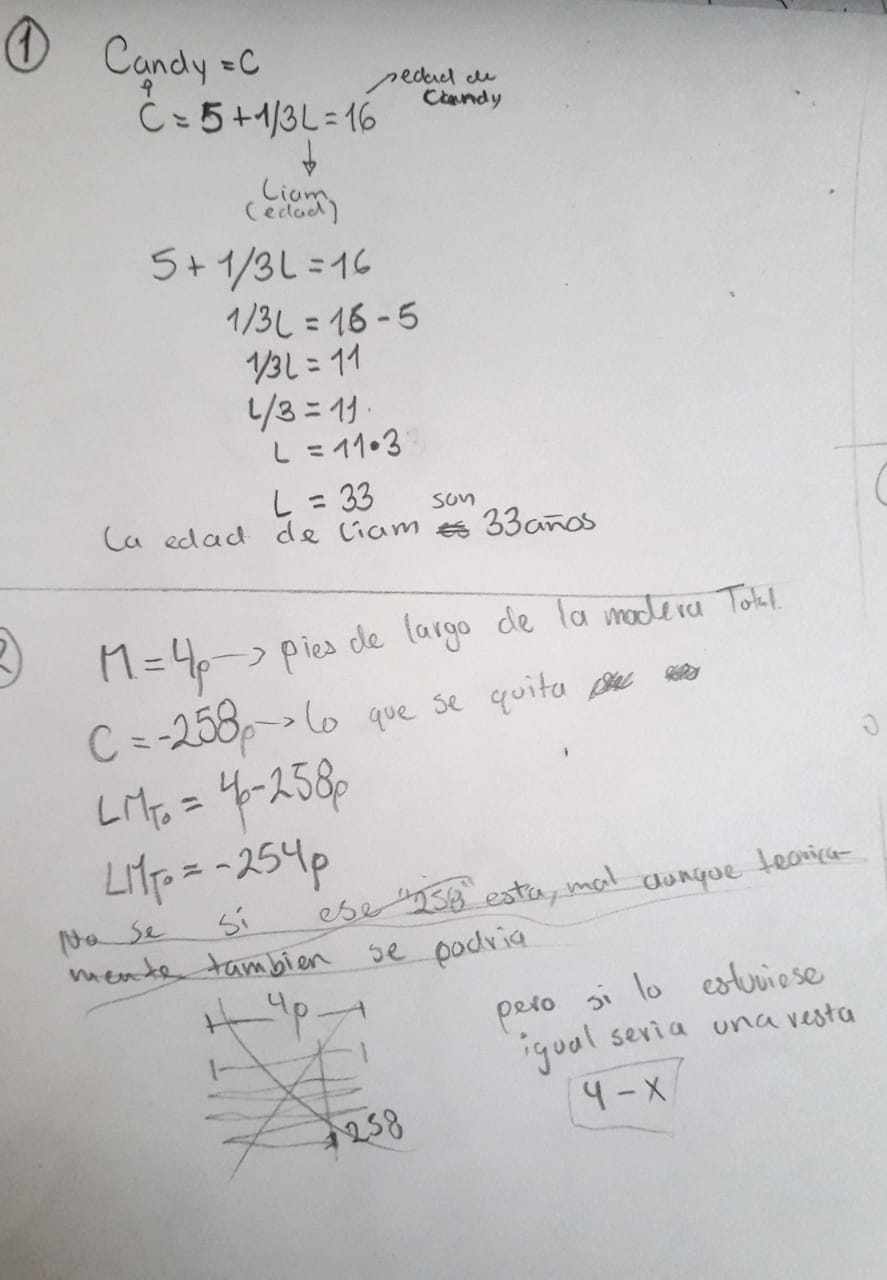 1
Candy = C
edad de
Candy
C = 5 + 1/3L = 16
Liam
(edad)
5 + 1/3L = 16
1/3L = 16 - 5
1/3L = 11
L/3 = 11.
L = 11•3
L = 33
La edad de Liam son 33 años
2
M = 4p → pies de largo de la madera Total.
C = -258p → lo que se quita
LMTo = 4p - 258p
LMTo = -254p
No se si ese "258" esta, mal aunque teorica-
mente tambien se podria
4p
258
pero si lo estuviese
igual seria una resta
4 - x